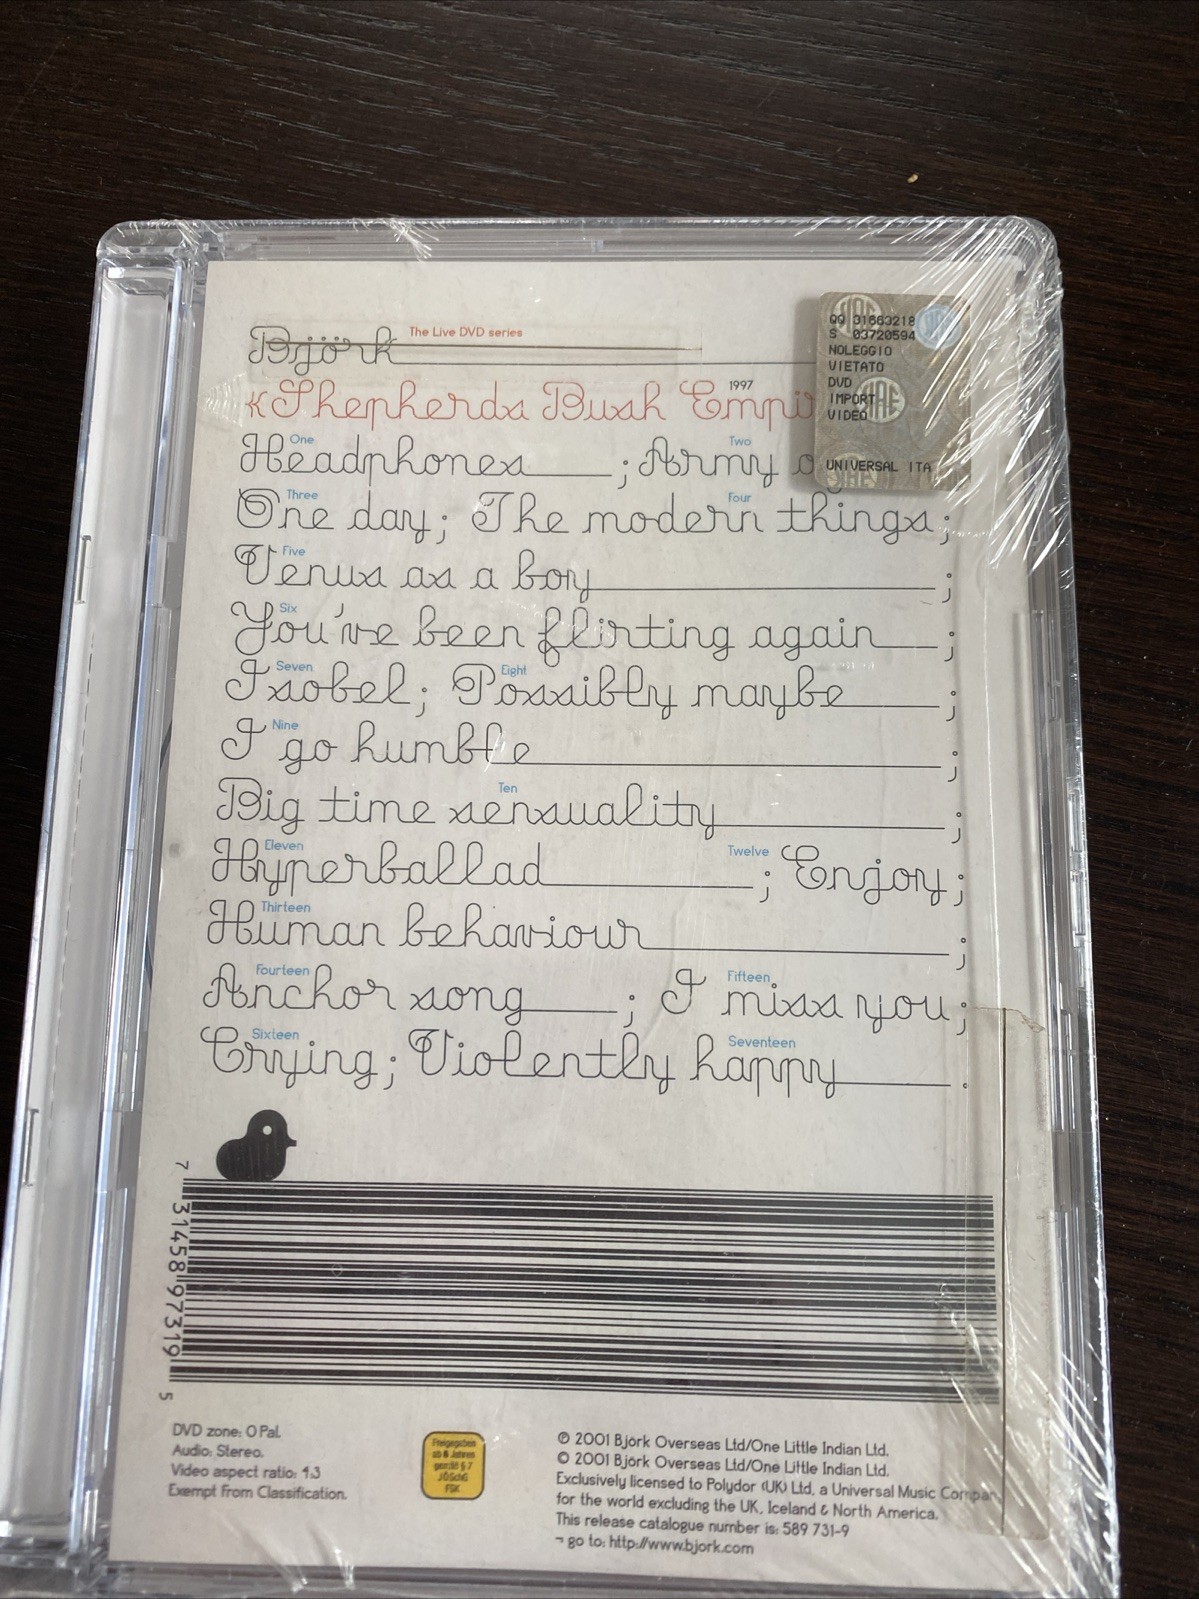 Björk The Live DVD series
«Shepherds Bush 1997
One Two
Headphones ; Army
Three Four
One day; The modern things;
Five
Venus as a boy ;
Six
You've been flirting again ;
Seven Eight
Isobel; Possibly maybe ;
Nine
I go humble ;
Ten
Big time sensuality ;
Eleven Twelve
Hyperballad ; Enjoy;
Thirteen
Human behaviour ;
Fourteen Fifteen
Anchor song ; I miss you;
Sixteen Seventeen
Crying; Violently happy .
QQ 31663218
S 03720594
NOLEGGIO
VIETATO
DVD
IMPORT
VIDEO
UNIVERSAL ITA
SIAE
7 31458 97319 5
DVD zone: 0 Pal.
Audio: Stereo.
Video aspect ratio: 4:3
Exempt From Classification.
Freigegeben
ab 6 Jahren
gemäß § 7
JÖSchG
FSK
℗ 2001 Björk Overseas Ltd/One Little Indian Ltd.
© 2001 Björk Overseas Ltd/One Little Indian Ltd.
Exclusively licensed to Polydor (UK) Ltd, a Universal Music Company
for the world excluding the UK, Iceland & North America.
This release catalogue number is: 589 731-9
¬ go to: http://www.bjork.com